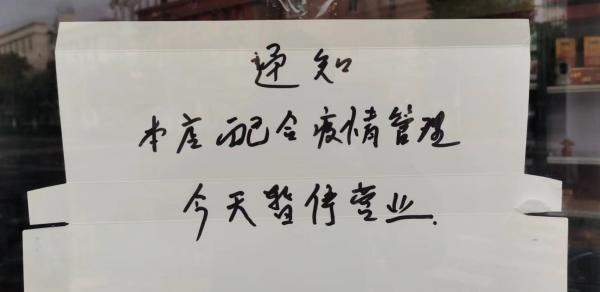 通知
本店配合疫情管理
今天暂停营业.